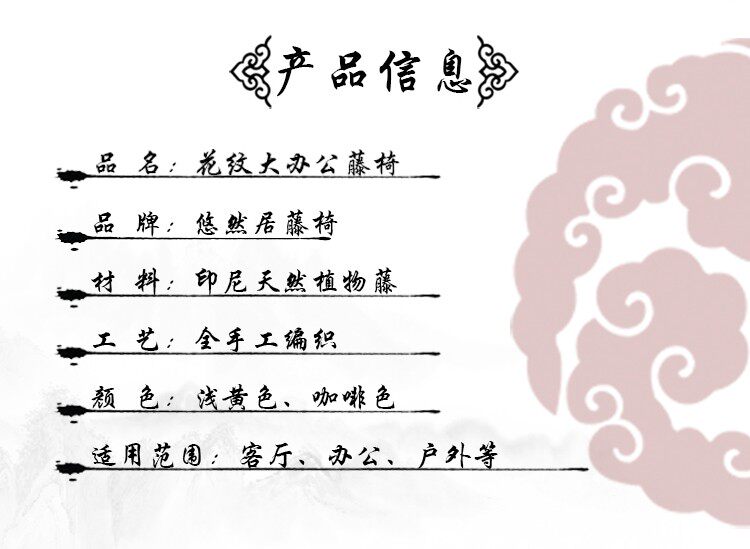 产品信息
品 名：花纹大办公藤椅
品 牌：悠然居藤椅
材 料：印尼天然植物藤
工 艺：全手工编织
颜 色：浅黄色、咖啡色
适用范围：客厅、办公、户外等